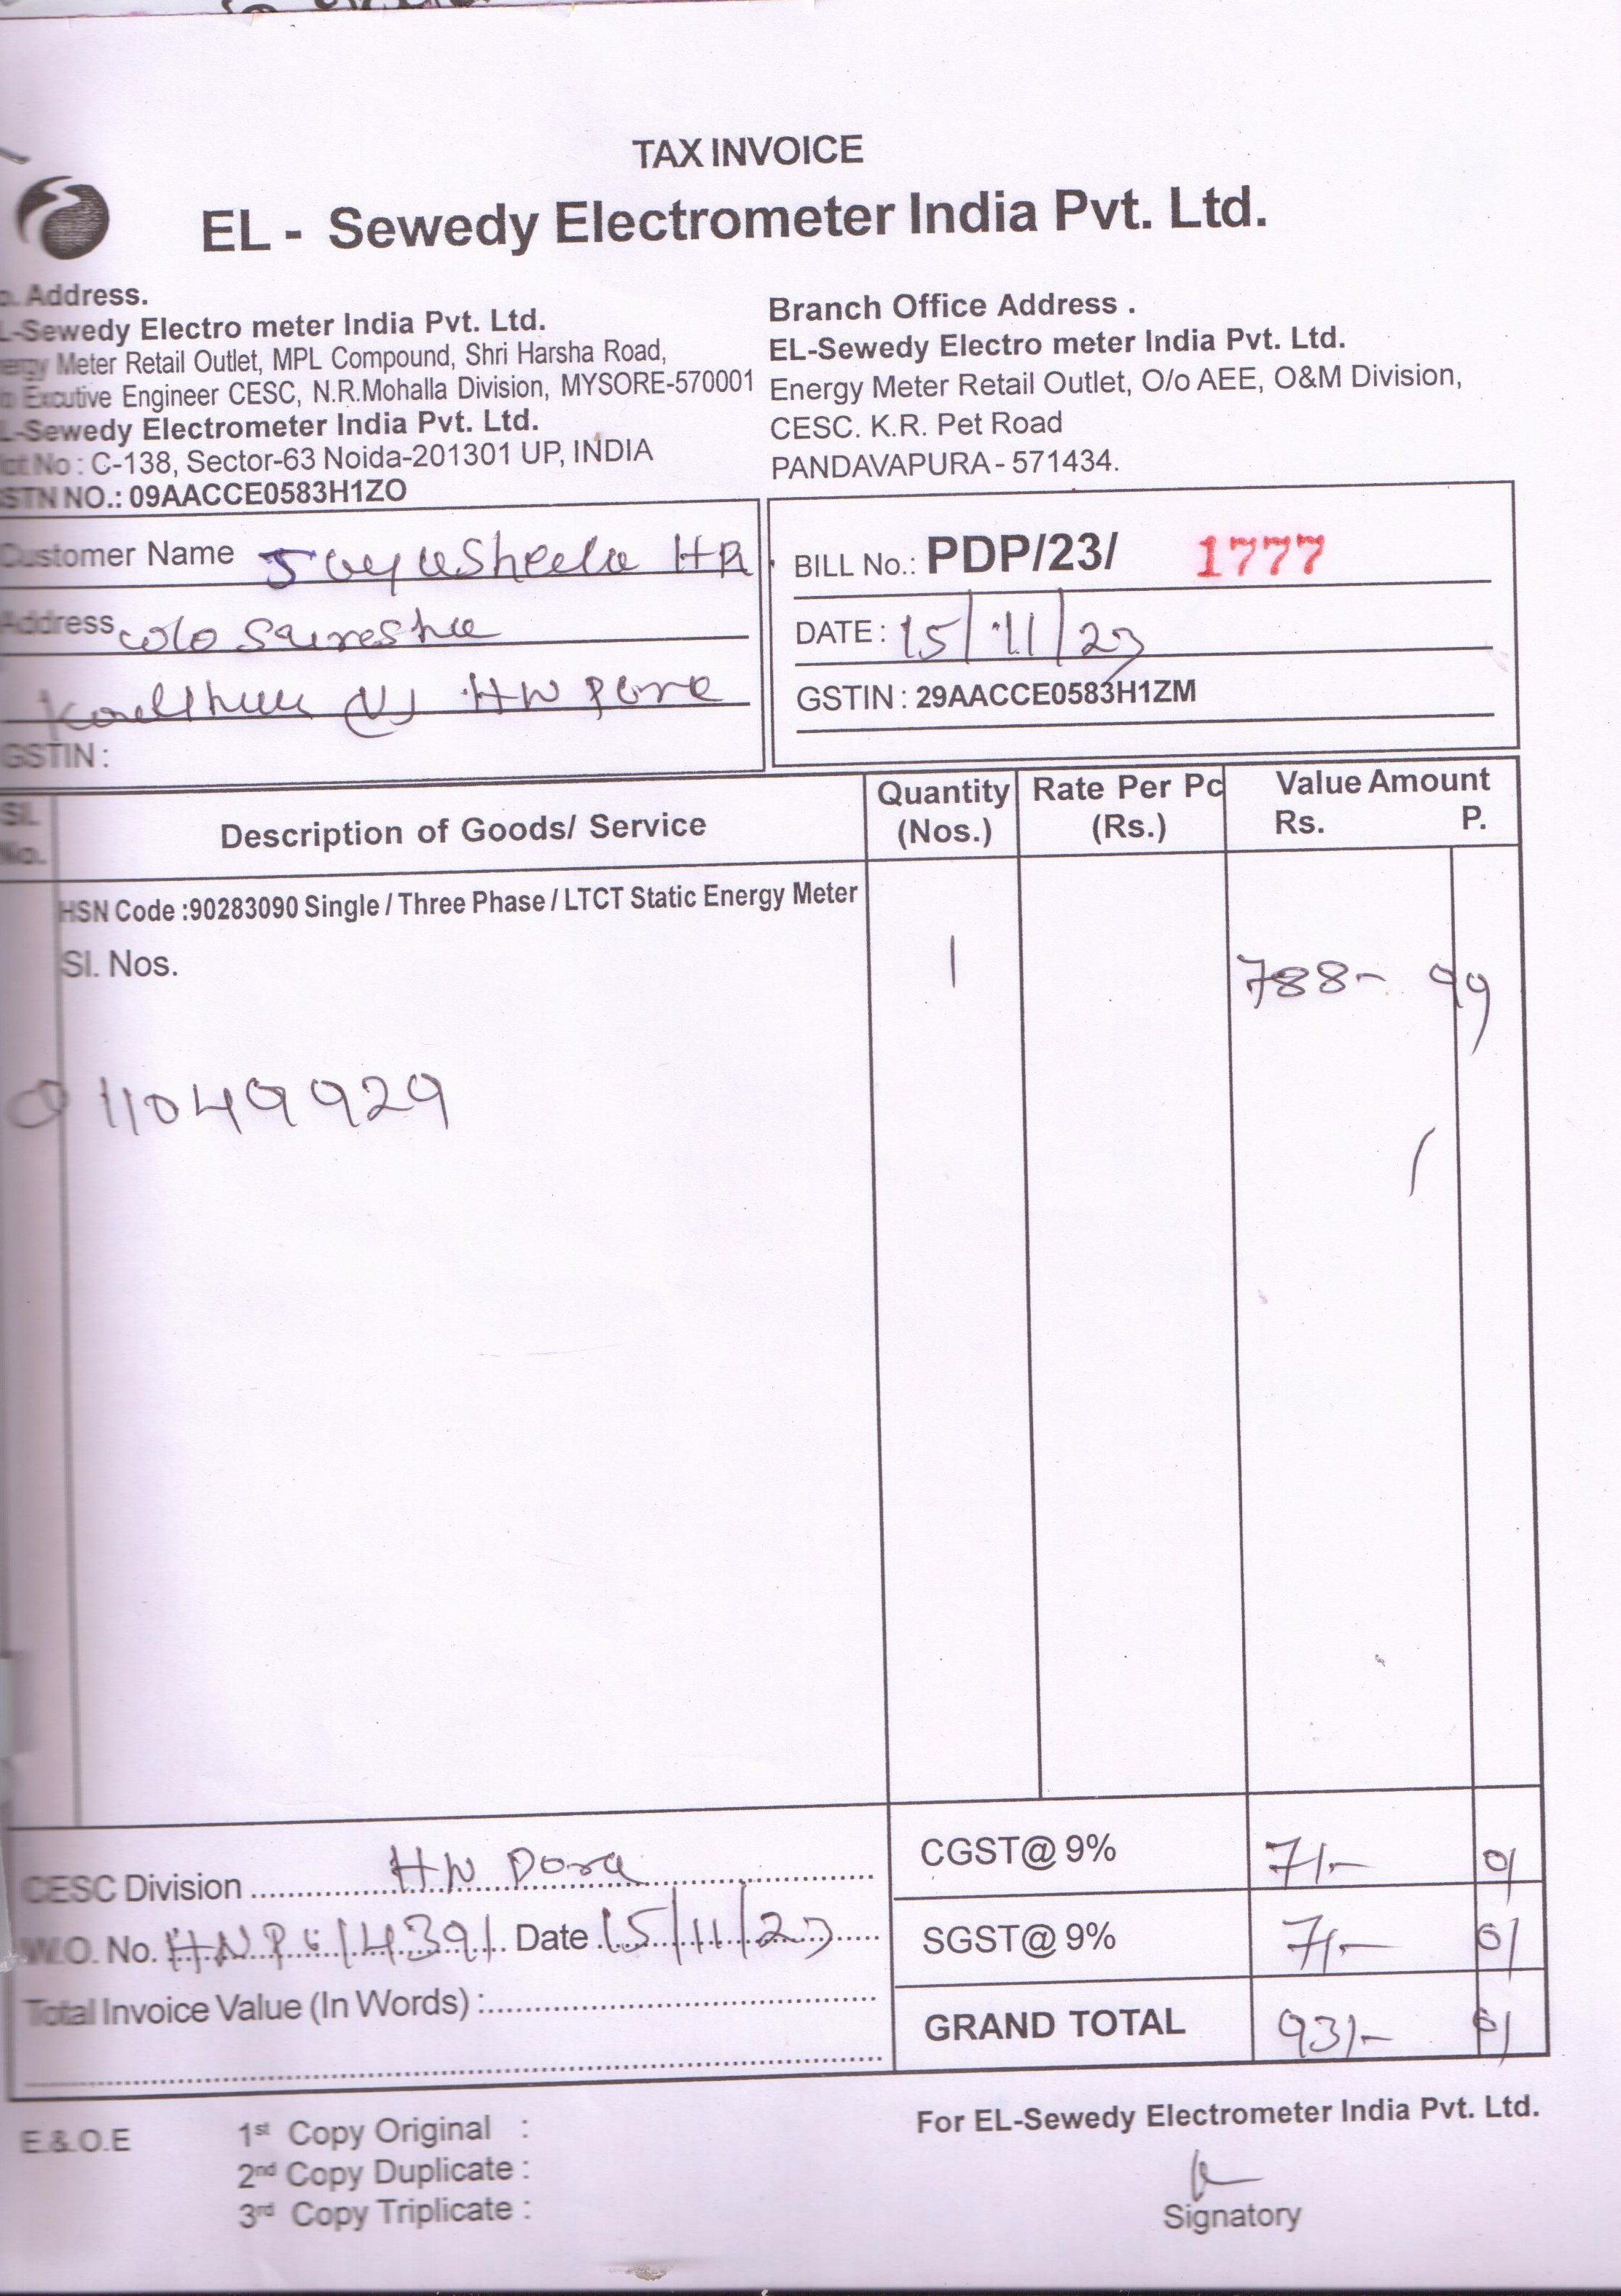 TAX INVOICE
EL - Sewedy Electrometer India Pvt. Ltd.
Address.
L-Sewedy Electro meter India Pvt. Ltd.
ergy Meter Retail Outlet, MPL Compound, Shri Harsha Road,
Excutive Engineer CESC, N.R.Mohalla Division, MYSORE-570001
L-Sewedy Electrometer India Pvt. Ltd.
No : C-138, Sector-63 Noida-201301 UP, INDIA
STN NO.: 09AACCE0583H1ZO
Branch Office Address .
EL-Sewedy Electro meter India Pvt. Ltd.
Energy Meter Retail Outlet, O/o AEE, O&M Division,
CESC. K.R. Pet Road
PANDAVAPURA - 571434.
Customer Name Jayasheela HR
Address w/o Suresha
HN Pura
GSTIN :
BILL No.: PDP/23/ 1777
DATE : 15/11/23
GSTIN : 29AACCE0583H1ZM
Sl. No. Description of Goods/ Service Quantity (Nos.) Rate Per Pc (Rs.) Value Amount Rs. P.
HSN Code :90283090 Single / Three Phase / LTCT Static Energy Meter
Sl. Nos. 1 788- 99
11049929
CESC Division HN Pora CGST@ 9% 71- 01
W.O. No. Date 15/11/23 SGST@ 9% 71- 01
Total Invoice Value (In Words) : GRAND TOTAL 931- 01
E.&.O.E
1st Copy Original :
2nd Copy Duplicate :
3rd Copy Triplicate :
For EL-Sewedy Electrometer India Pvt. Ltd.
Signatory